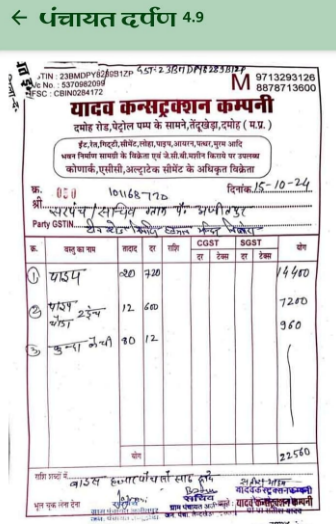 ← पंचायत दर्पण 4.9
GSTIN : 23BMDPY8283B1ZP GST-23BMDPY8283B1ZP
A/c No. : 5370982099
IFSC : CBIN0284172
M 9713293126
8878713600
यादव कन्सट्रक्शन कम्पनी
दमोह रोड, पेट्रोल पम्प के सामने, तेंदूखेड़ा, दमोह ( म.प्र. )
ईंट, रेत, गिट्टी, सीमेंट, लोहा, पाइप, आयरन, पत्थर, मुरम आदि
भवन निर्माण सामग्री के विक्रेता एवं जे.सी.बी. मशीन किराये पर उपलब्ध
कोणार्क, एसीसी, अल्ट्राटेक सीमेंट के अधिकृत विक्रेता
क्र. 050 101168770 दिनांक 15-10-24
श्री सरपंच / सचिव ग्राम पं.
Party GSTIN
क्र. वस्तु का नाम तादाद दर राशि CGST SGST योग
दर टैक्स दर टैक्स
1 पाइप 020 720 14400
2 पाइप 2 इंच 12 600 7200
3 80 12 960
योग 22560
राशि शब्दों में बाइस हजार पांच सौ साठ रूपये
भूल चूक लेना देना
सचिव
ग्राम पंचायत
यादव कंस्ट्रक्शन कम्पनी